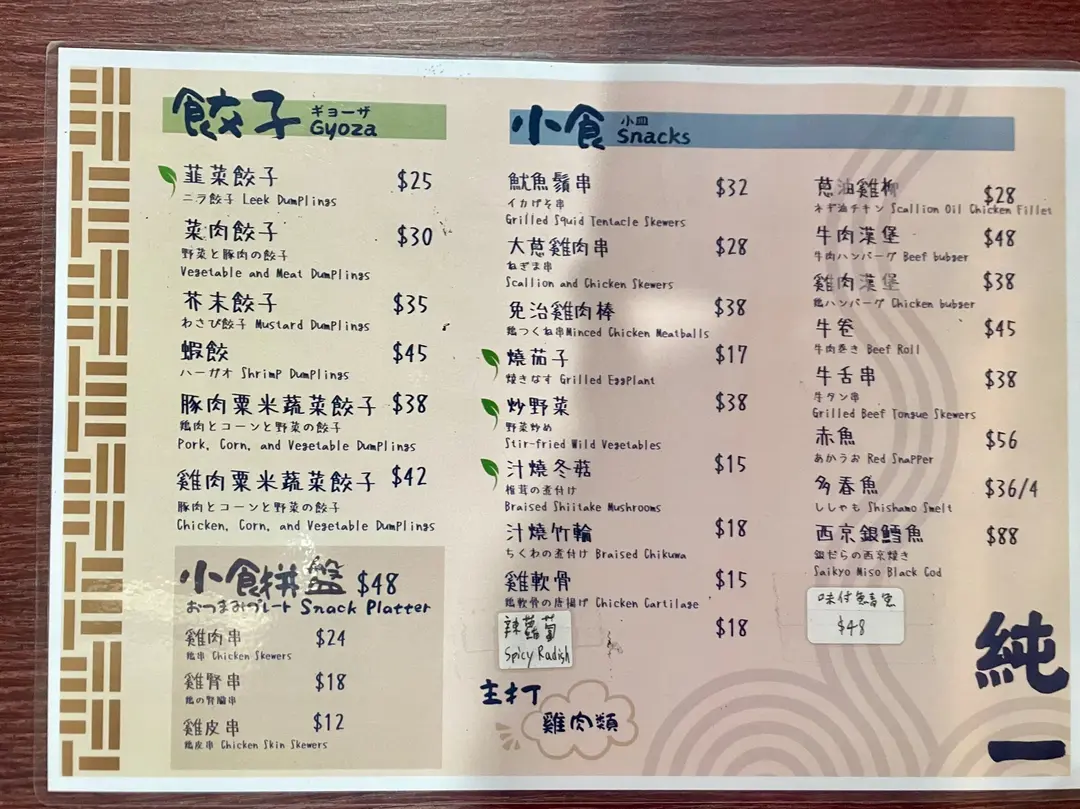 餃子 ギョーザ Gyoza
韮菜餃子 $25
ニラ餃子 Leek Dumplings
菜肉餃子 $30
野菜と豚肉の餃子
Vegetable and Meat Dumplings
芥末餃子 $35
わさび餃子 Mustard Dumplings
蝦餃 $45
ハーガオ Shrimp Dumplings
豚肉粟米蔬菜餃子 $38
鶏肉とコーンと野菜の餃子
Pork, Corn, and Vegetable Dumplings
雞肉粟米蔬菜餃子 $42
豚肉とコーンと野菜の餃子
Chicken, Corn, and Vegetable Dumplings
小食拼盤 $48
おつまみプレート Snack Platter
雞肉串 $24
鶏串 Chicken Skewers
雞腎串 $18
鶏の腎臓串
雞皮串 $12
鶏皮串 Chicken Skin Skewers
小食 小皿 Snacks
魷魚鬚串 $32
イカげそ串
Grilled Squid Tentacle Skewers
大蔥雞肉串 $28
ねぎま串
Scallion and Chicken Skewers
免治雞肉棒 $38
鶏つくね串Minced Chicken Meatballs
燒茄子 $17
焼きなす Grilled Eggplant
炒野菜 $38
野菜炒め
Stir-fried Wild Vegetables
汁燒冬菇 $15
椎茸の煮付け
Braised Shiitake Mushrooms
汁燒竹輪 $18
ちくわの煮付け Braised Chikuwa
雞軟骨 $15
鶏軟骨の唐揚げ Chicken Cartilage
辣蘿蔔 $18
Spicy Radish
主打
雞肉類
蔥油雞柳 $28
ネギ油チキン Scallion Oil Chicken Fillet
牛肉漢堡 $48
牛肉ハンバーグ Beef bubger
雞肉漢堡 $38
鶏ハンバーグ Chicken bubger
牛卷 $45
牛肉巻き Beef Roll
牛舌串 $38
牛タン串
Grilled Beef Tongue Skewers
赤魚 $56
あかうお Red Snapper
多春魚 $36/4
ししゃも Shishamo Smelt
西京銀鱈魚 $88
銀だらの西京焼き
Saikyo Miso Black Cod
味付
$48
純一